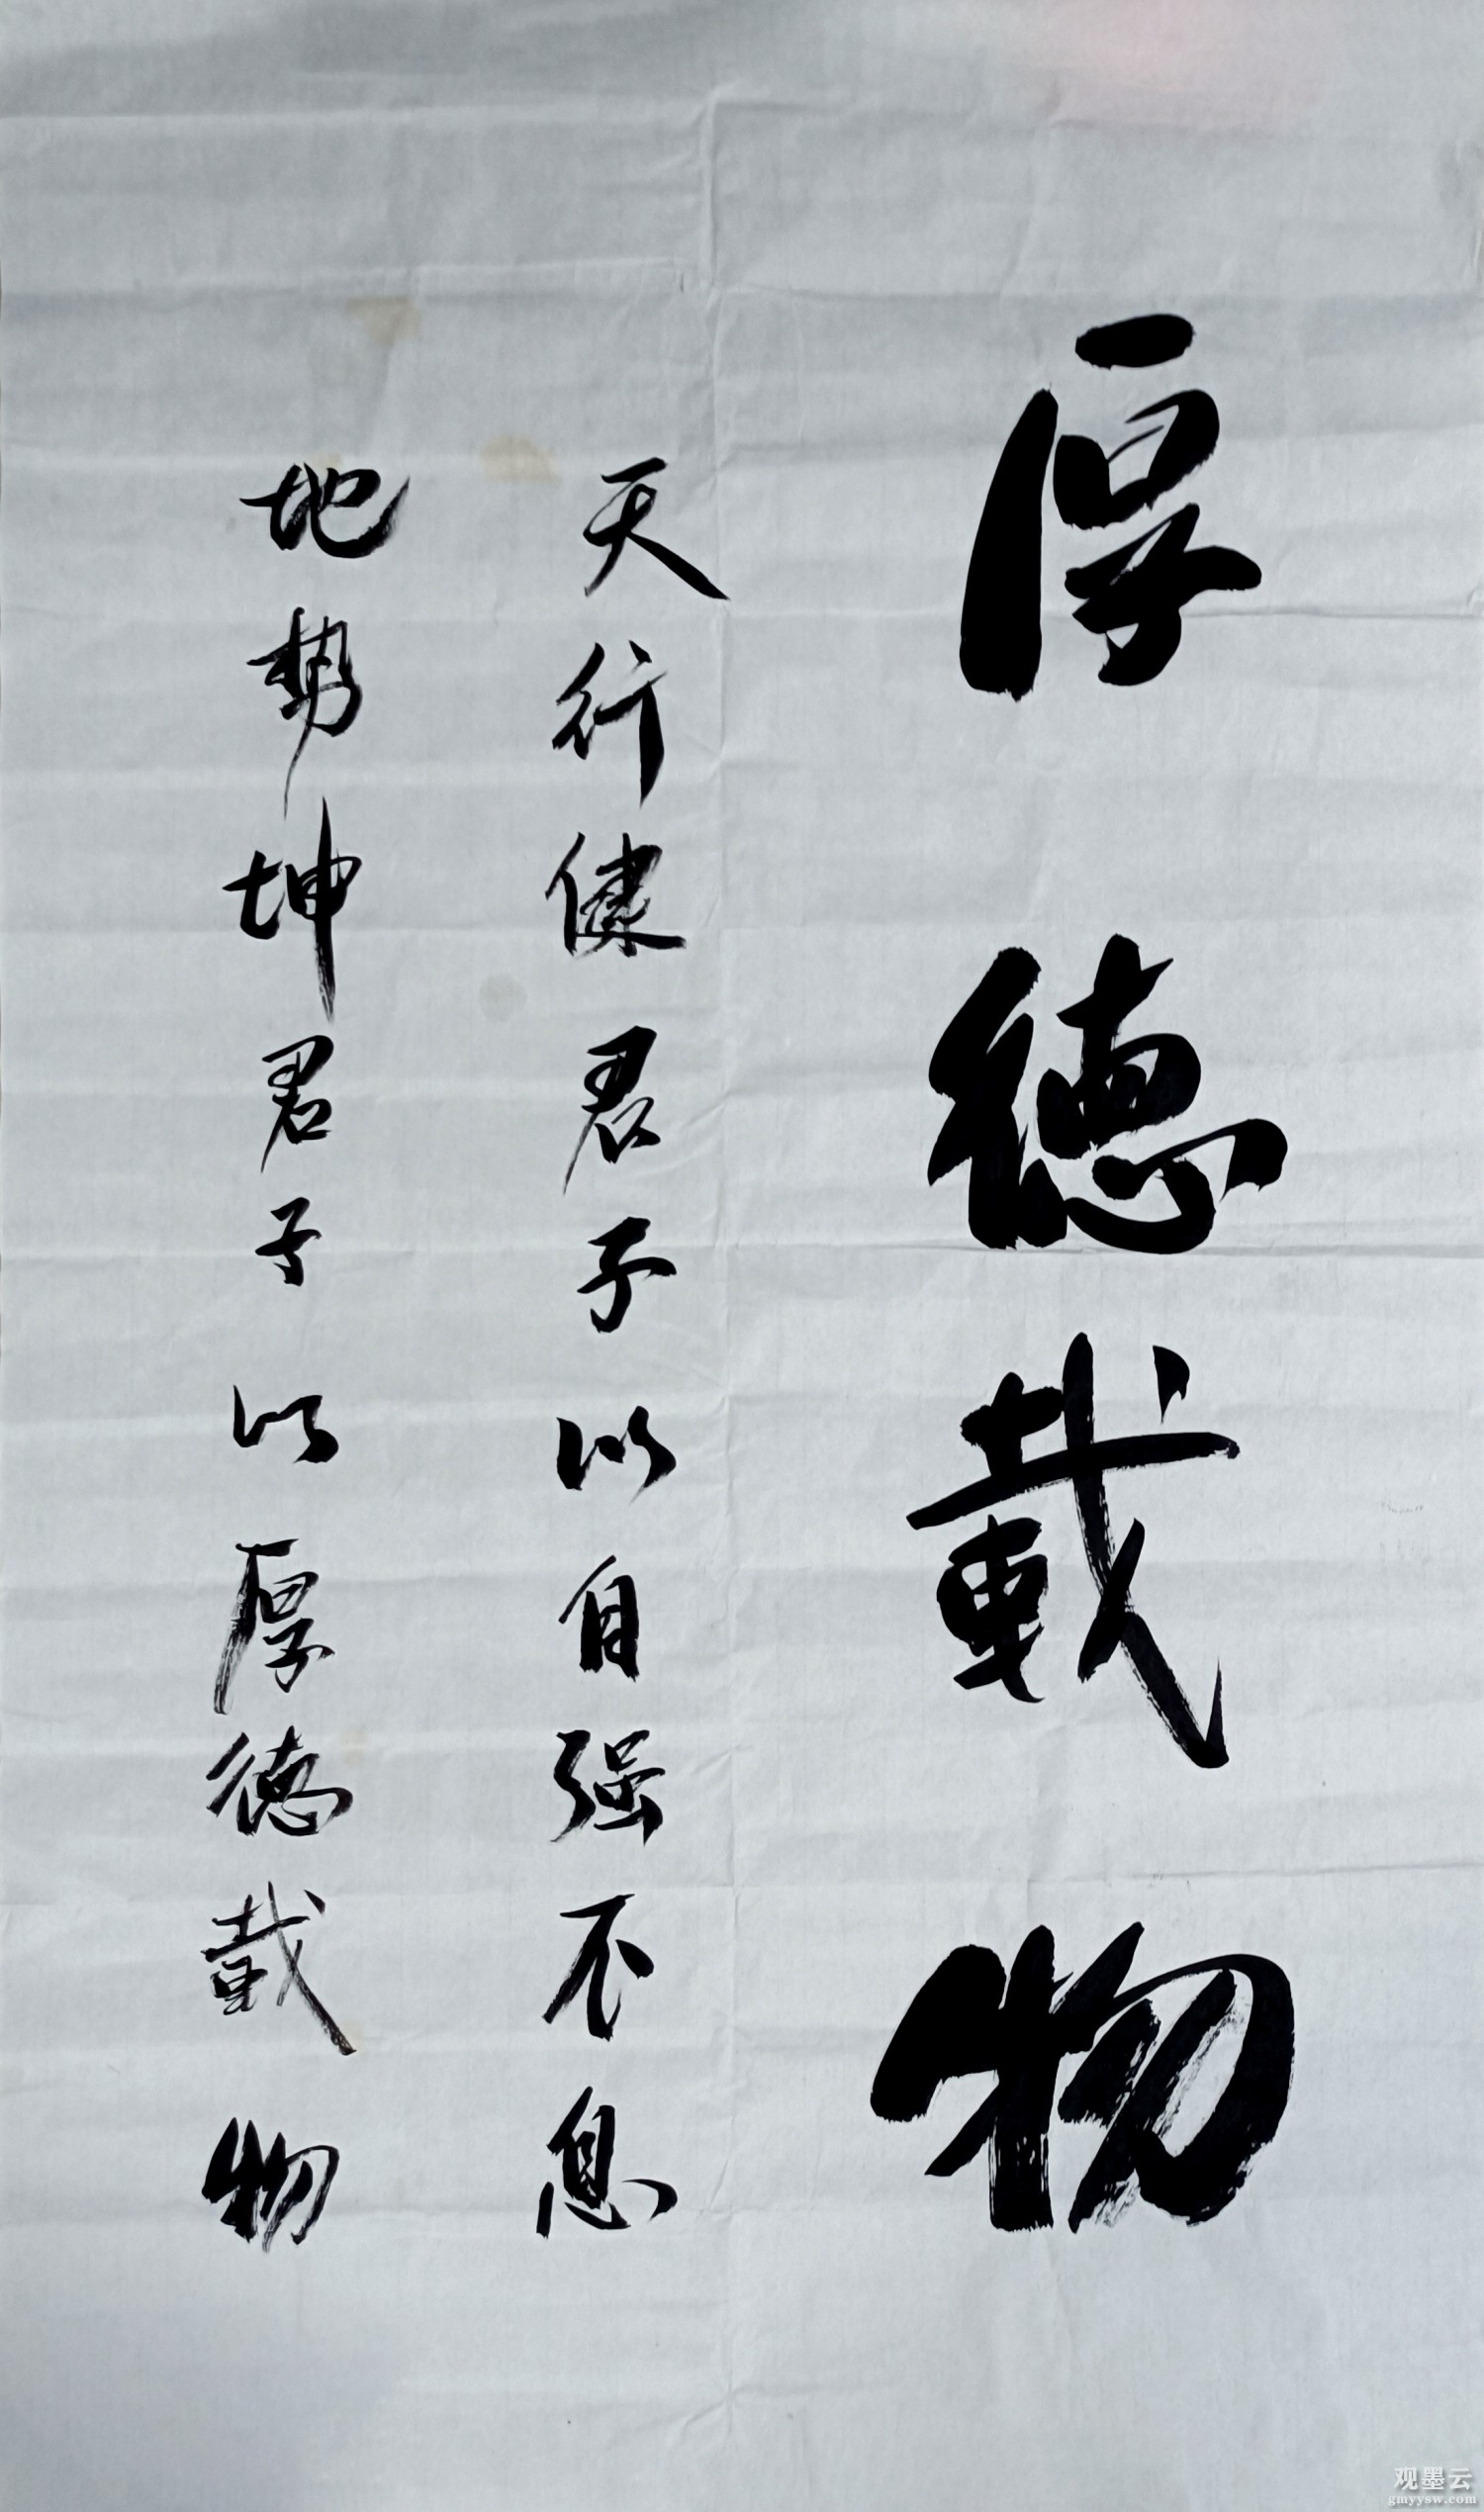 厚德載物
天行健君子以自强不息
地势坤君子以厚德載物
观墨云
gmyysw.com